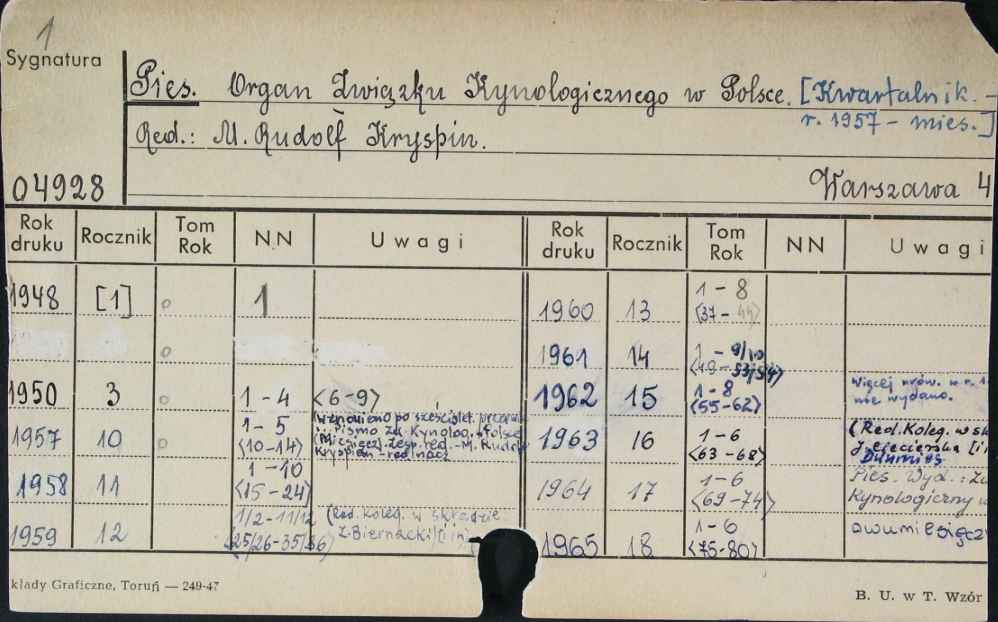 1
Sygnatura
Pies. Organ Związku Kynologicznego w Polsce. [Kwartalnik. -
r. 1957 - mies.]
Red.: M. Rudolf Kryspin.
04928
Warszawa 4
Rok druku Rocznik Tom Rok NN Uwagi Rok druku Rocznik Tom Rok NN Uwagi
1948 [1] 1
1950 3 1 - 4 <6-9>
1957 10 1 - 5 <10-14> Wznowiono po sześciolet.
Pismo Zw. Kynolog. w Polsce
(Miesięcz). Zesp. red. - M. Rudolf
Kryspin - red. nacz.
1958 11 1 - 10 <15-24>
1959 12 1/2-11/12 <25/26-35/36> (Red. Koleg. w składzie
Z. Biernacki [i in]
1960 13 1 - 8 <37-44>
1961 14 1 - 9/10 <45-53/54>
1962 15 1-8 <55-62> Więcej nrów. w r.
nie wydano.
1963 16 1-6 <63-68> (Red. Koleg. w sk
[i
Dwumies.
1964 17 1-6 <69-74> Pies. Wyd.: Zw
Kynologiczny w
1965 18 1-6 <75-80> dwumiesięcz
kłady Graficzne, Toruń — 249-47
B. U. w T. Wzór